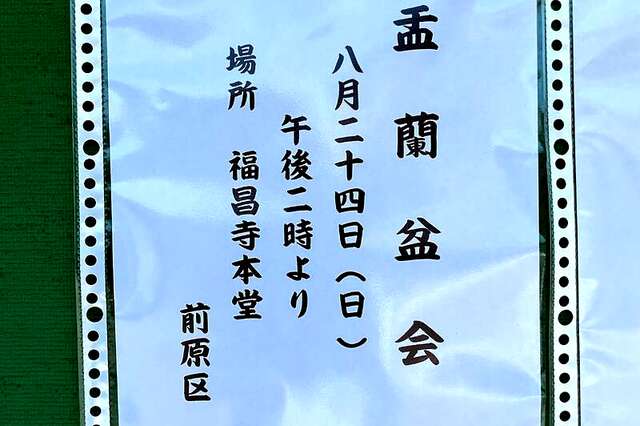 盂蘭盆会
八月二十四日(日)
午後二時より
場所 福昌寺本堂
前原区